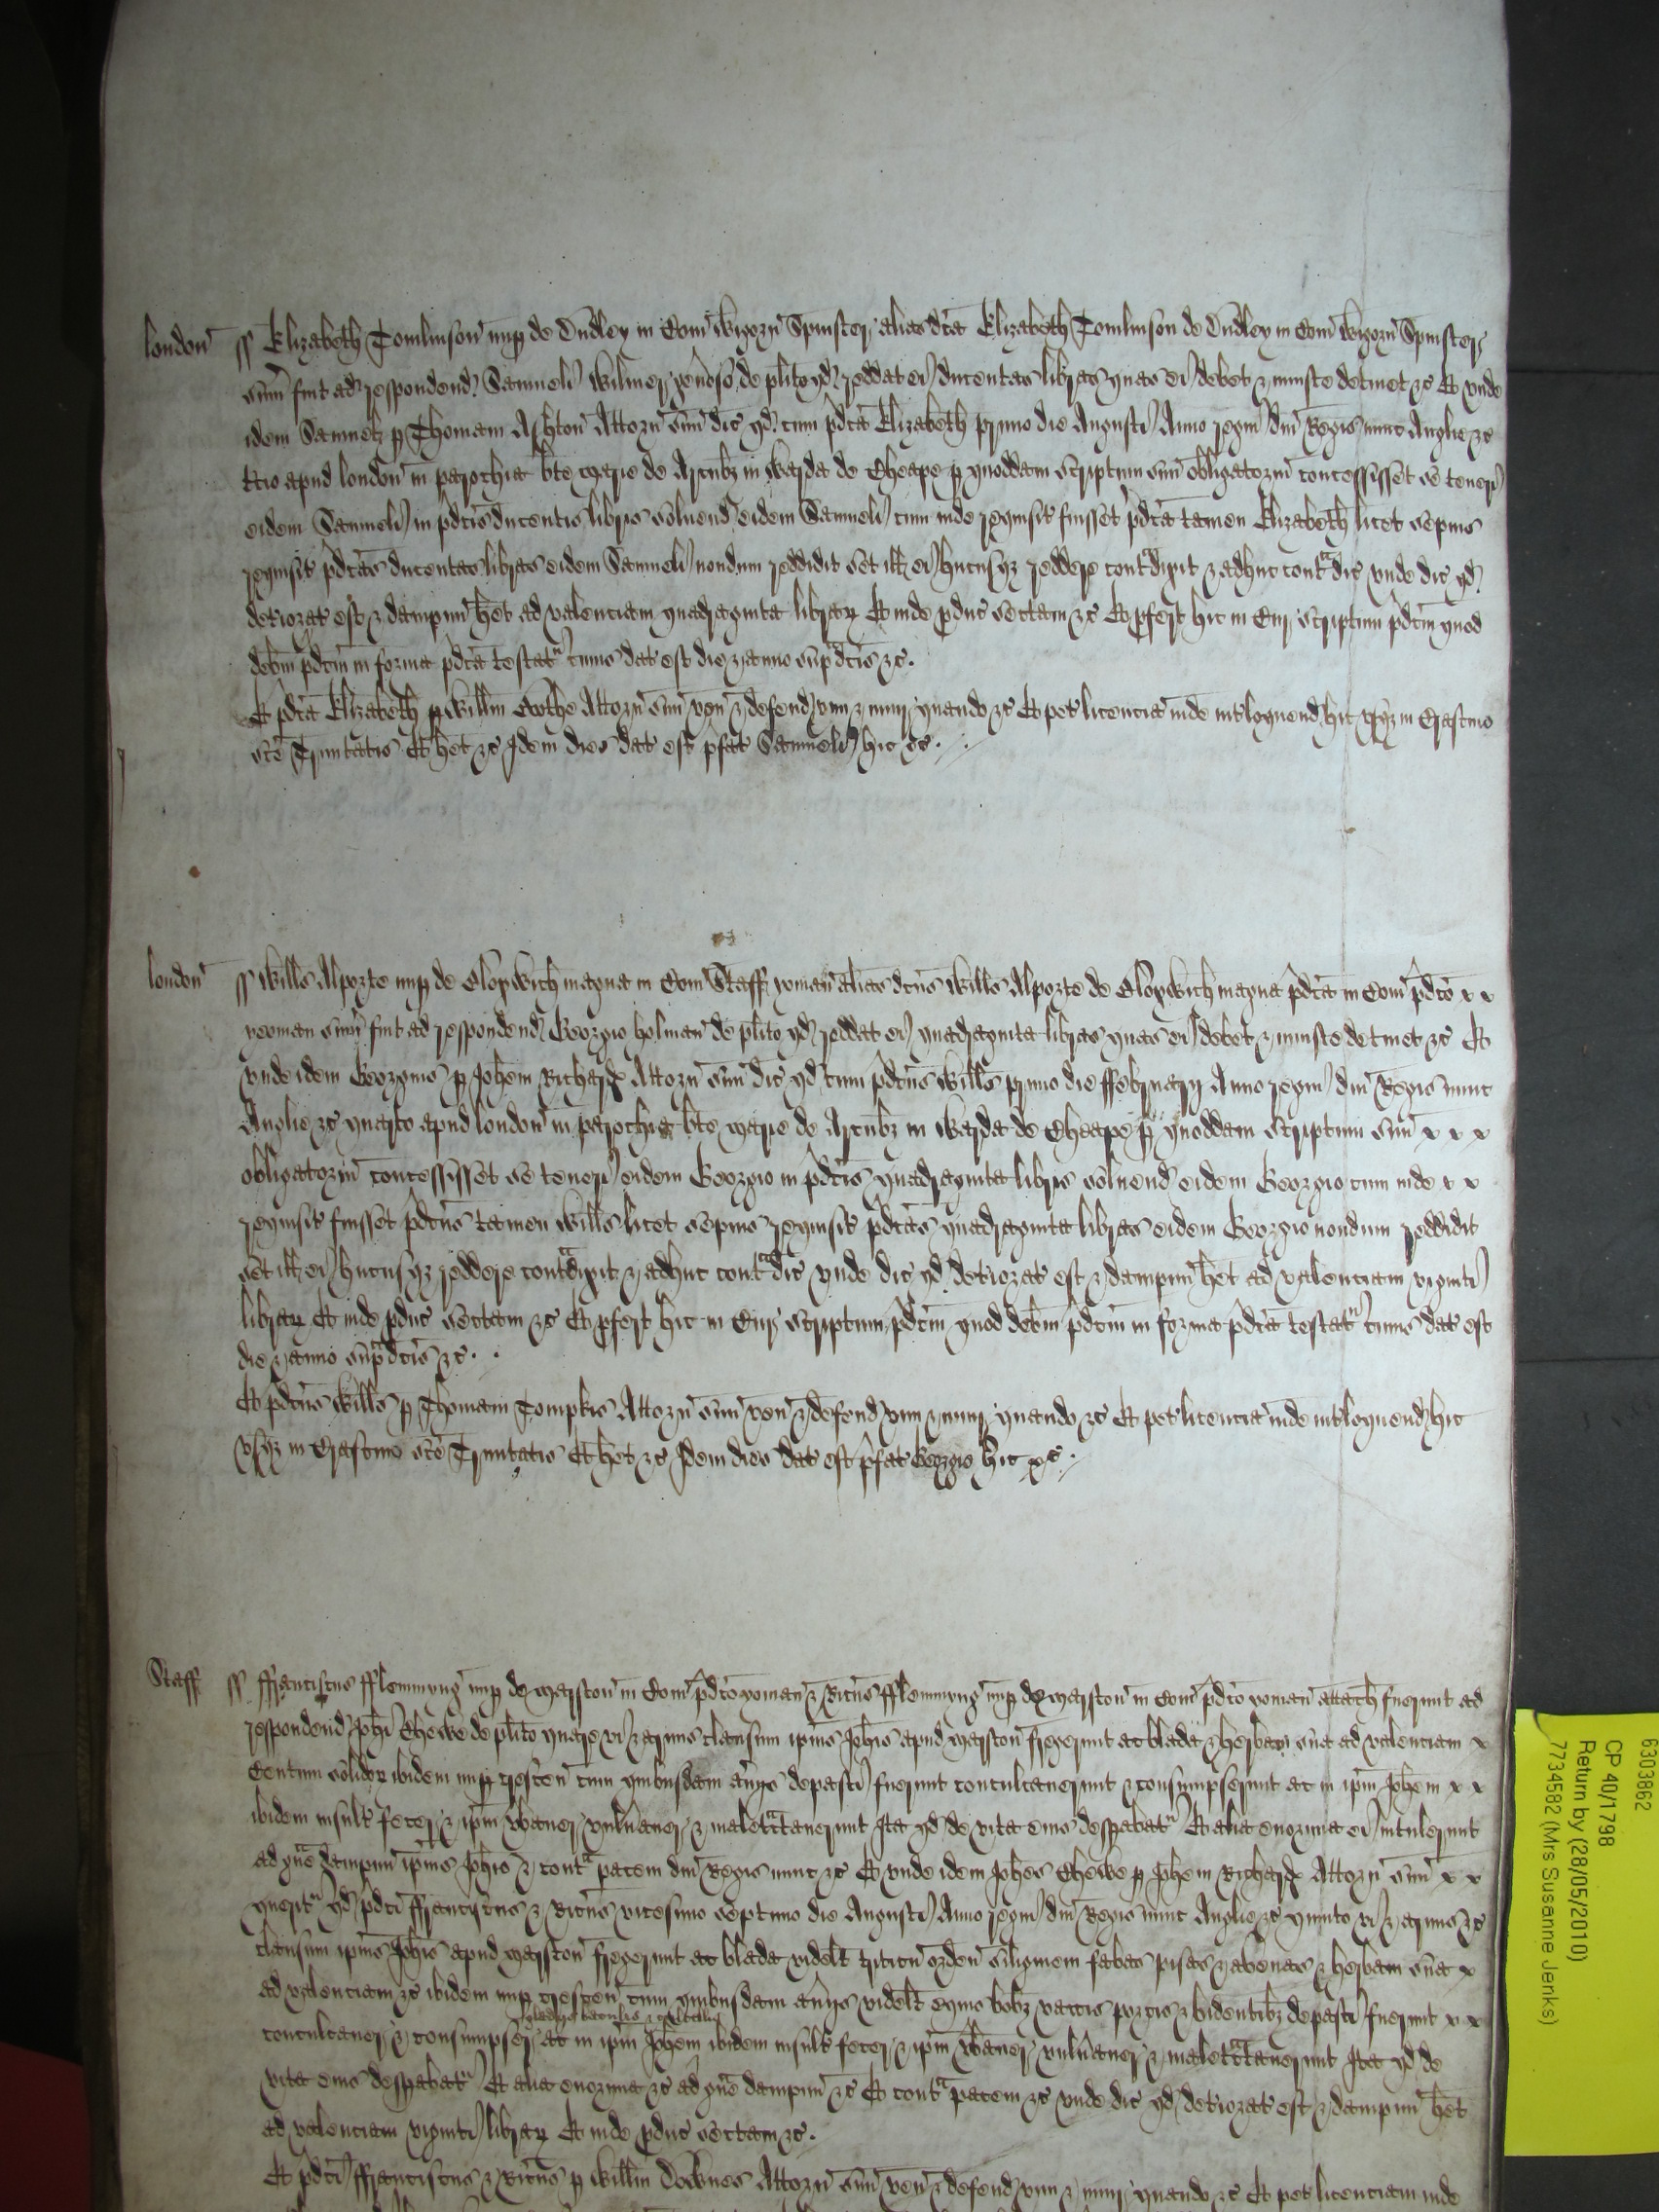 london ss Elizabeth Tomlinson nup de Dudley in Com Wigorn Spinster alias dca Elizabeth Tomlinson de Dudley in Com Wigorn Spinster
sum fuit ad respondend Samueli Wilmer genoso de plito qd reddat ei ducentas libras quas ei debet & iniuste detinet &c Et unde
idem Samuel p Thomam Ashton Attorn suu dic qd cum pdca Elizabeth primo die Augusti Anno regni dni Regis nunc Anglie &c
tcio apud london in parochia bte marie de Arcubz in Warda de Cheape p quoddam scriptum suu obligatoriu concessisset se teneri
eidem Samueli in pdcis ducentis libris solvend eidem Samueli cum inde requisit fuisset pdca tamen Elizabeth licet sepius
requisit pdcas ducentas libras eidem Samueli nondum reddidit set ill ei hucusqz reddere contadixit & adhuc contadic unde dic qd
deriorat est & dampnu het ad valenciam quadraginta librar Et inde pduc sectam &c Et pfert hic in Cur scriptum pdcm quod
debm pdcm in forma pdca testat cuius dat est die & anno supadcis &c.
Et pdca Elizabeth p Willm Boothe Attorn suu ven & defend vim & iniur quando &c Et pet licencia inde intloquend hic usqz in Crastino
sce Trinitatis Et het &c Idem dies dat est pfat Samueli hic &c.
london ss Wills Alporte nup de Bloxwich magna in Com Staff yoman alias dcus Wills Alporte de Bloxwich magna pdca in Com pdco x x
yeoman sum fuit ad respondend Georgio holman de plito qd reddat ei quadraginta libras quas ei debet & iniuste detinet &c Et
unde idem Georgius p Johem Richard Attorn suu dic qd cum pdcus Wills primo die ffebruarij Anno regni dni Regis nunc
Anglie &c quarto apud london in parochia bte marie de Arcubz in Warda de Cheape p quoddam scriptum suu x x x
obligatoriu concessisset se teneri eidem Georgio in pdcis quadraginta libris solvend eidem Georgio cum inde x x
requisit fuisset pdcus tamen Wills licet sepius requisit pdcas quadraginta libras eidem Georgio nondum reddidit
set ill ei hucusqz reddere contadixit & adhuc contadic unde dic qd deriorat est & dampnu het ad valenciam viginti
librar Et inde pduc sectam &c Et pfert hic in Cur scriptum pdcm quod debm pdcm in forma pdca testat cuius dat est
die & anno supadcis &c.
Et pdcus Wills p Thomam Tompkis Attorn suu ven & defend vim & iniur quando &c Et pet licencia inde intloquend hic
usqz in Crastino sce Trinitatis Et het &c Idem dies dat est pfat Georgio hic &c.
Staff ss ffranciscus fflemmyng nup de marston in Com pdco yoman & Ricus fflemmyng nup de marston in Com pdco yoman attach fuerunt ad
respondend Johi Cheise de plito quare vi & armis clausum ipius Johis apud marston fregerunt ac blada & herbam sua ad valenciam x
Centum solidor ibidem nup crescen cum quibusdam aujs depasti fuerunt conculcauerunt & consumpserunt ac in ipm Johem x x
ibidem insult fecer & ipm vbauer vulnauer & maletactauerunt Ita qd de vita eius despabat Et alia enormia ei intulerunt
ad gue dampnu ipius Johis & conta pacem dni Regis nunc &c Et unde idem Johes Cheise p Johem Richard Attorn suu x x
querit qd pdci ffranciscus & Ricus vicesimo septimo die Augusti Anno regni dni Regis nunc Anglie &c quinto vi & armis &c
clausum ipius Johis apud marston fregerunt ac blada videlt triticu orden siliginem fabas pisas & avenas & herbam sua x
ad valenciam &c ibidem nup crescen cum quibusdam aujs videlt equis bobz vaccis porcis & bidentibz depasti fuerunt x x
gladijs baculis & cultellis
conculcauer & consumpser ac in ipm Johem ibidem insult fecer & ipm vbauer vulnauer & maletactauerunt Ita qd de
vita eius despabat Et alia enormia &c ad gue dampnu &c Et conta pacem &c unde dic qd deriorat est & dampnu het
ad valenciam viginti librar Et inde pduc sectam &c.
Et pdci ffranciscus & Ricus p Willm Downes Attorn suu ven & defend vim & iniur quando &c Et pet licenciam inde
6303862
CP 40/1798
Return by (28/05/2010)
7734582 (Mrs Susanne Jenks)